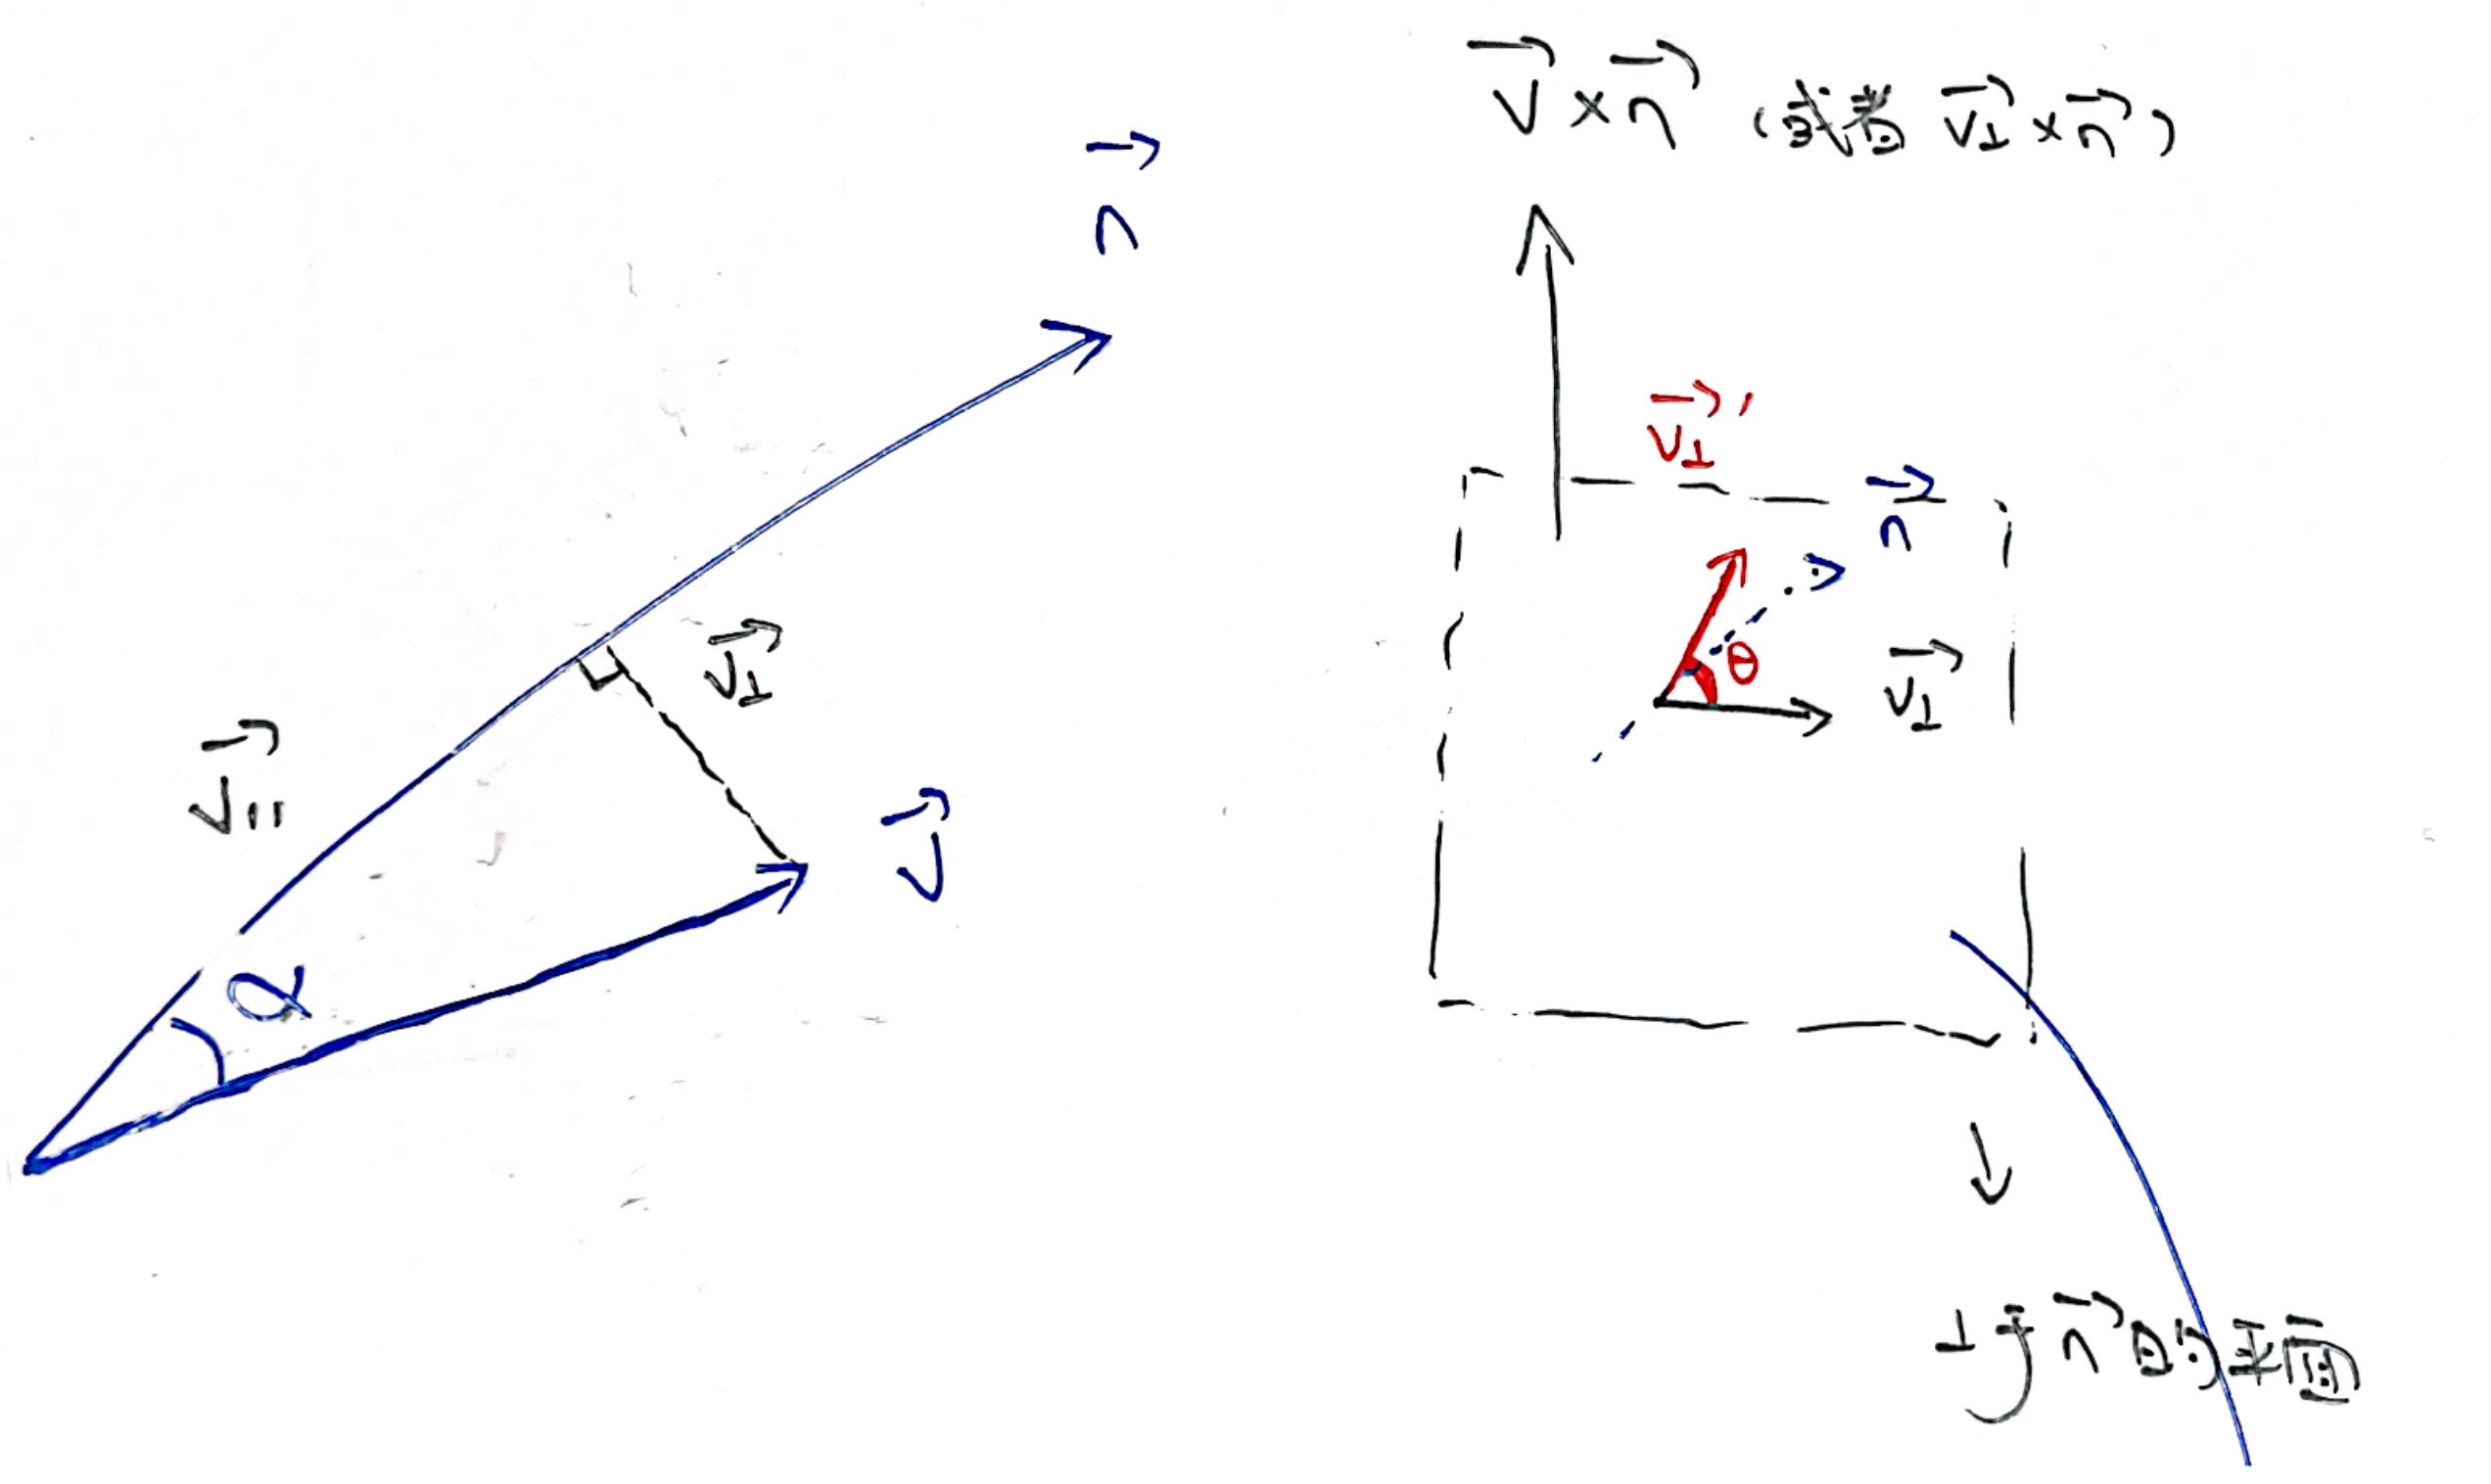 n⃗
v⃗⊥
v⃗∥
v⃗
α
v⃗×n⃗ (或者 v⃗⊥×n⃗)
v⃗⊥′
n⃗
θ
v⃗⊥
⊥于n⃗的平面